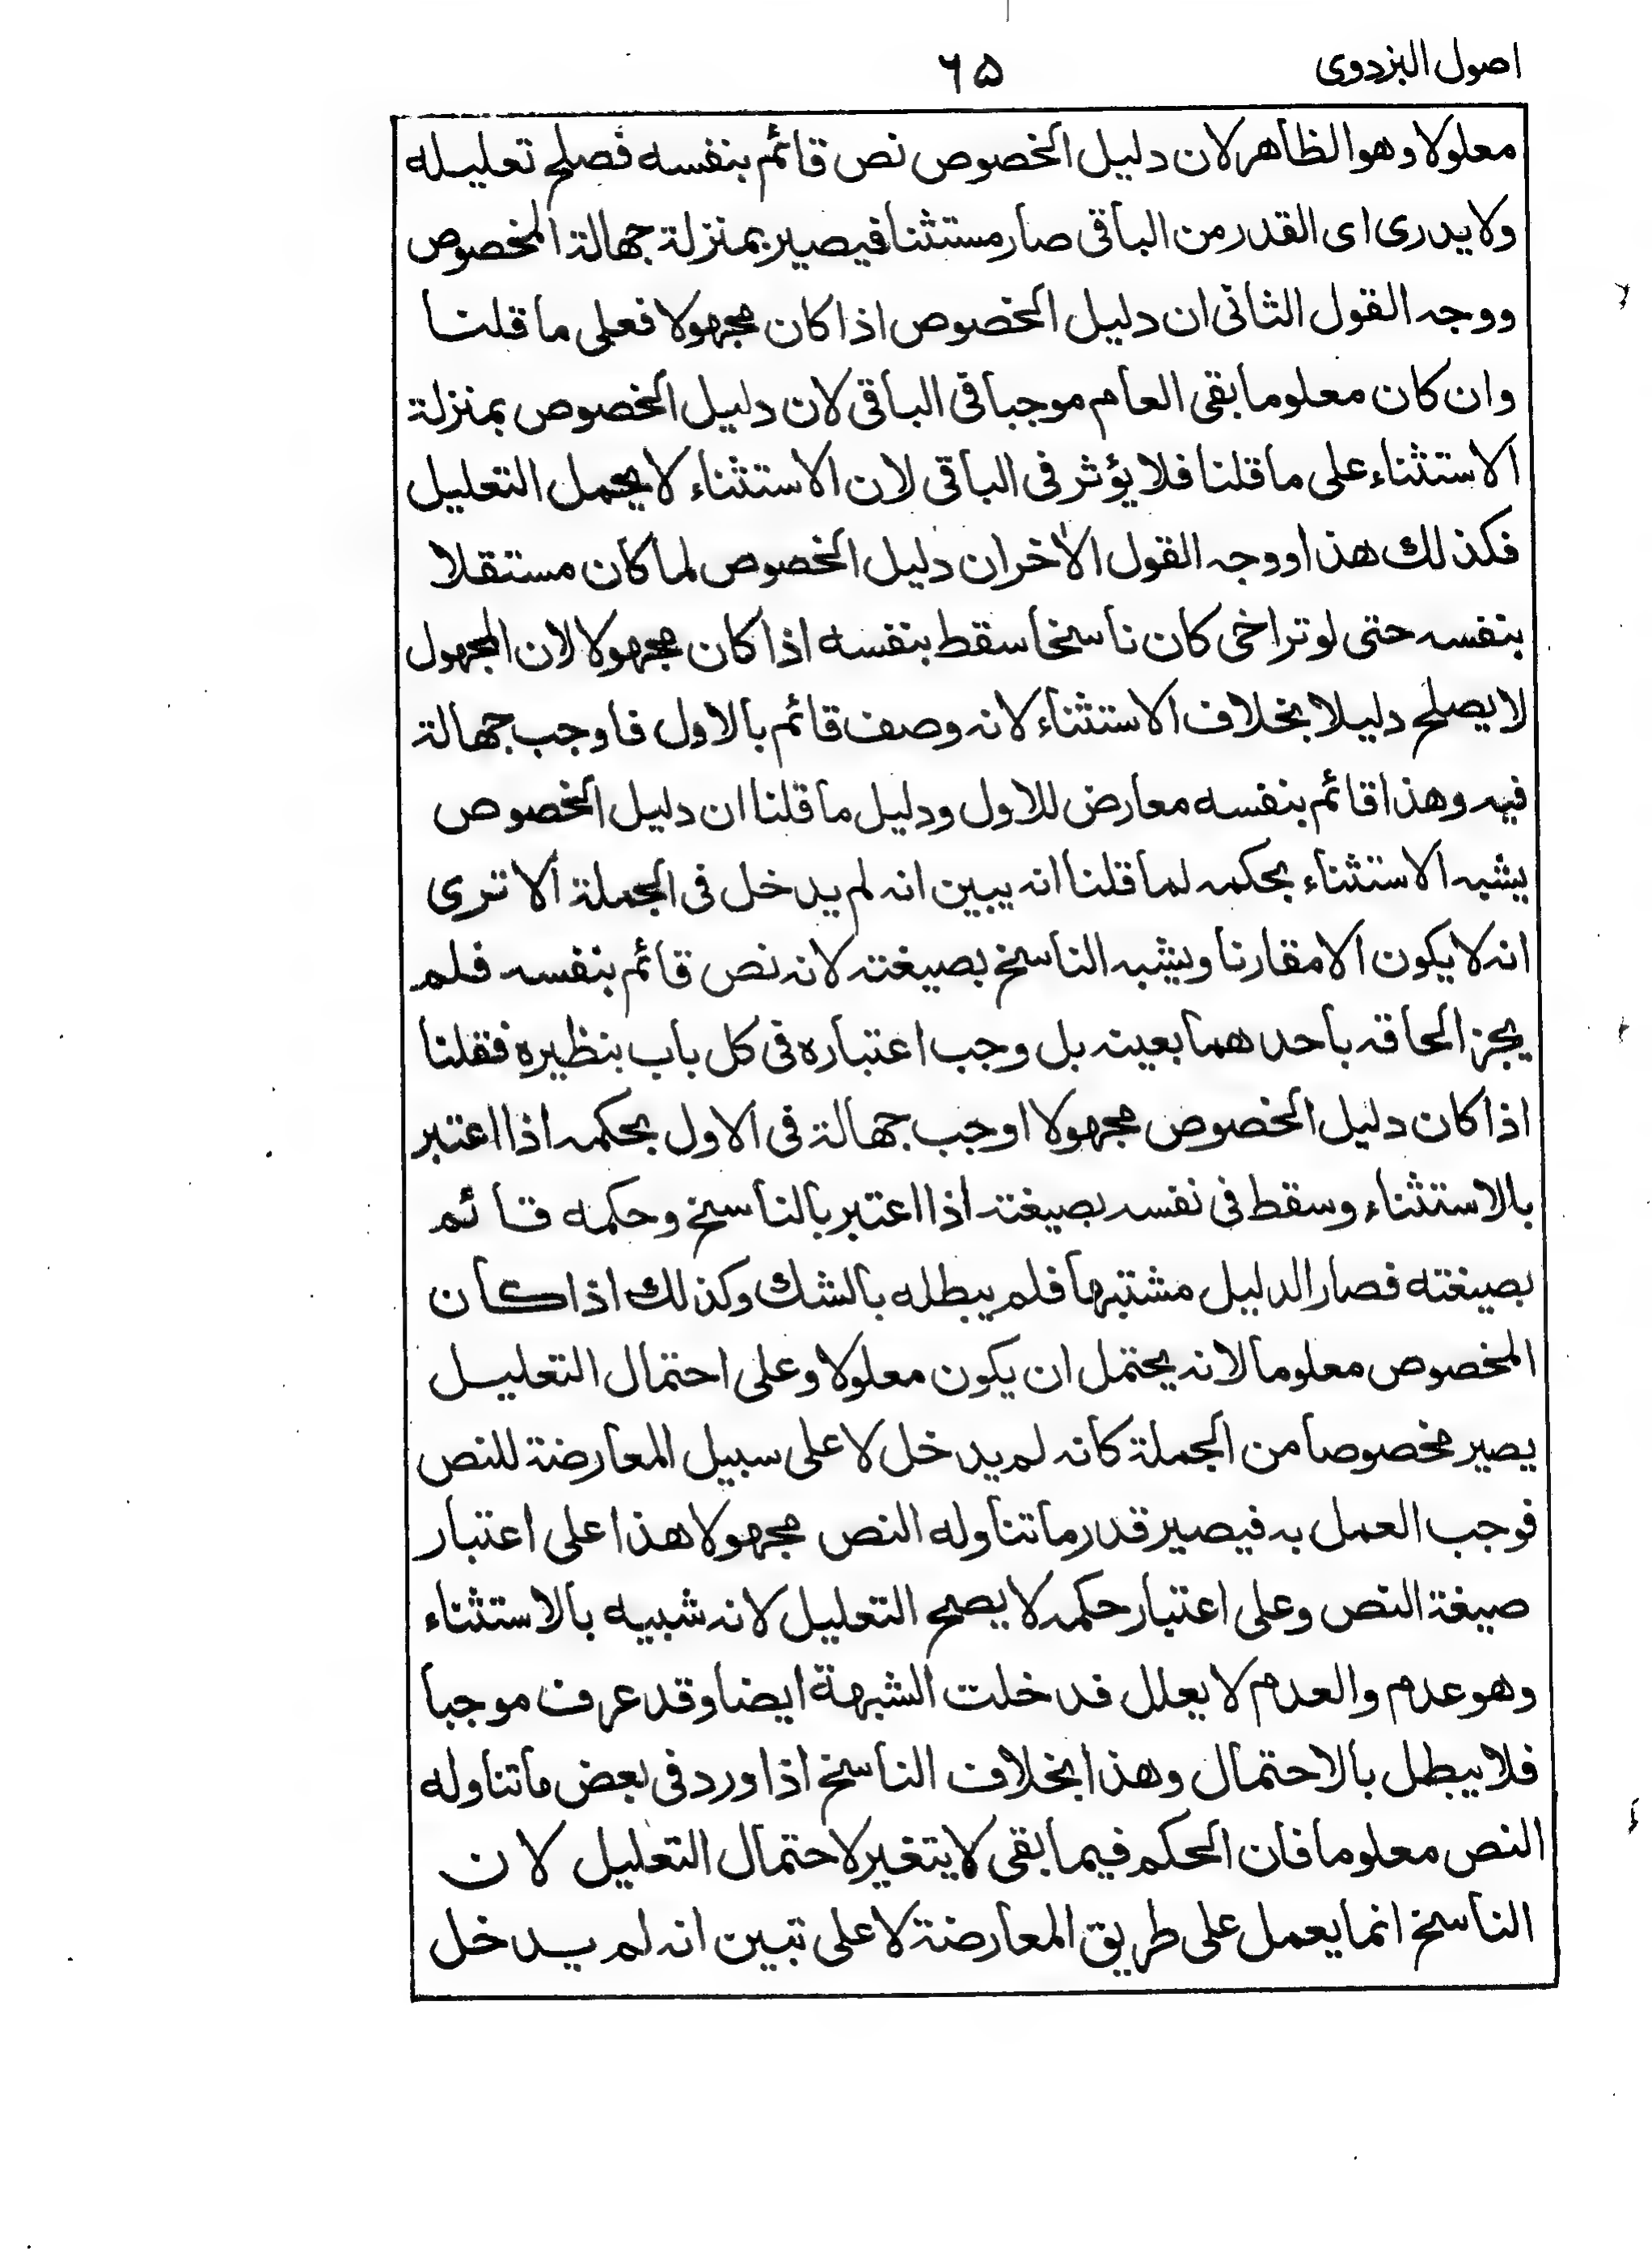 اصول البزدوی ۶۵
معلولا وهو الظاهر لان دليل الخصوص نص قائم بنفسه فصلح تعليله
ولا يدرى اى القدر من الباقى صار مستثنا فيصير بمنزلة جهالة المخصوص
ووجه القول الثانى ان دليل الخصوص اذا كان مجهولا فعلى ما قلنا
وان كان معلوما بقى العام موجبا فى الباقى لان دليل الخصوص بمنزلة
الاستثناء على ما قلنا فلا يؤثر فى الباقى لان الاستثناء لا يحمل التعليل
فكذلك هذا ووجه القول الاٰخر ان دليل الخصوص لما كان مستقلا
بنفسه حتى لو تراخى كان ناسخا سقط بنفسه اذا كان مجهولا لان المجهول
لا يصلح دليلا بخلاف الاستثناء لانه وصف قائم بالاول فاوجب جهالة
فيه وهذا قائم بنفسه معارض للاول ودليل ما قلنا ان دليل الخصوص
يشبه الاستثناء بحكمه لما قلنا انه يبين انه لم يدخل فى الجملة ألا ترى
انه لا يكون الا مقارنا ويشبه الناسخ بصيغته لانه نص قائم بنفسه فلم
يجز الحاقه باحدهما بعينه بل وجب اعتباره فى كل باب بنظيره فقلنا
اذا كان دليل الخصوص مجهولا اوجب جهالة فى الاول بحكمه اذا اعتبر
بالاستثناء وسقط فى نفسه بصيغته اذا اعتبر بالناسخ وحكمه قائم
بصيغته فصار الدليل مشتبها فلم يبطله بالشك وكذلك اذا كان
المخصوص معلوما لانه يحتمل ان يكون معلولا وعلى احتمال التعليل
يصير مخصوصا من الجملة كانه لم يدخل لا على سبيل المعارضة للنص
فوجب العمل به فيصير قدر ما تناوله النص مجهولا هذا على اعتبار
صيغة النص وعلى اعتبار حكمه لا يصح التعليل لانه شبيه بالاستثناء
وهو عدم والعدم لا يعلل فدخلت الشبهة ايضا وقد عرف موجبا
فلا يبطل بالاحتمال وهذا بخلاف الناسخ اذا ورد فى بعض ما تناوله
النص معلوما فان الحكم فيما بقى لا يتغير لاحتمال التعليل لان
الناسخ انما يعمل على طريق المعارضة لا على تبين انه لم يدخل